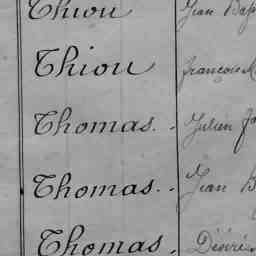 Thiou Jean Bap
Thiou françois M
Thomas. Julien Jo
Thomas.. Jean B
Thomas. Désiré